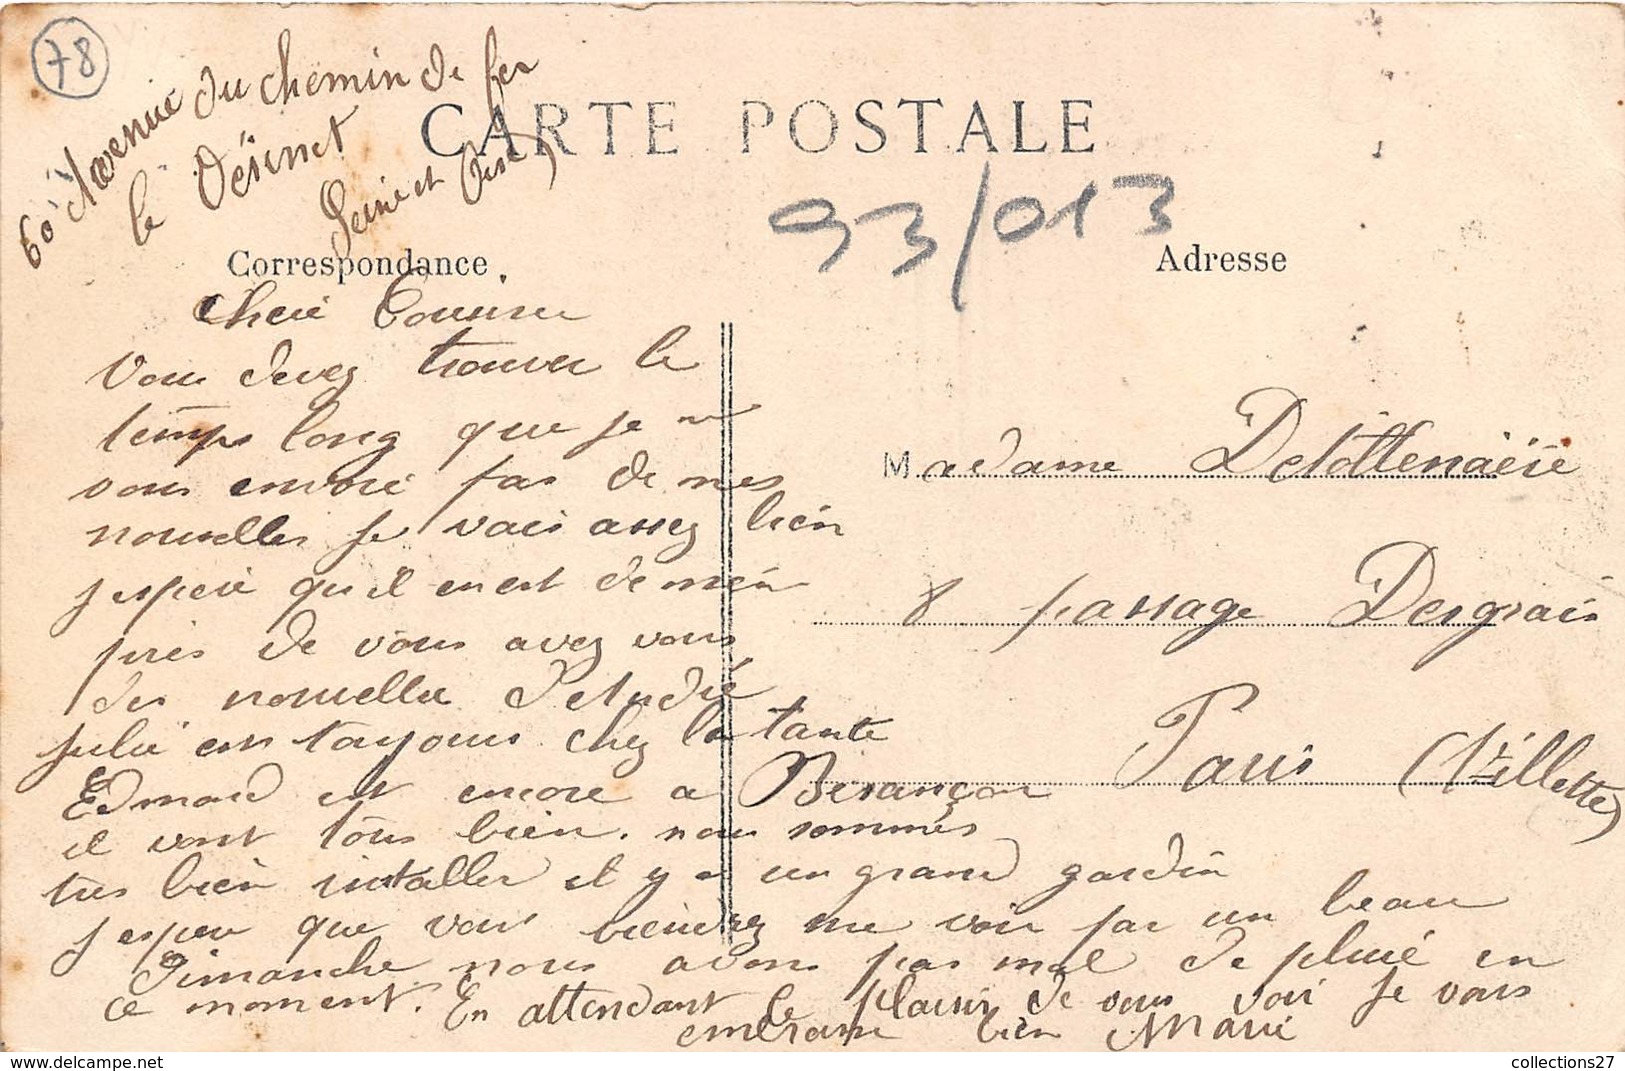 78
60 Avenue du chemin de fer
le Vésinet
Seine et Oise
CARTE POSTALE
93/013
Correspondance
Adresse
Chere Cousine
Vous devez trouver le
temps long que je ne
vous envoie pas de mes
nouvelles je vais assez bien
jespere qu'il en est de mein
pres de vous avez vous
des nouvelles
julie est toujours chez la tante
Edmond est encore a Besançon
il vont tous bien. nous sommes
tres bien installer il y a un grand gardin
jesper que vous viendrez me voir par un beau
Dimanche nous avons pas mal de pluie en
ce moment. En attendant le plaisir de vous voir je vous
embrasse bien Marie
Madame Delottenaëre
8 passage Desgrais
Paris (Villette)
collections27